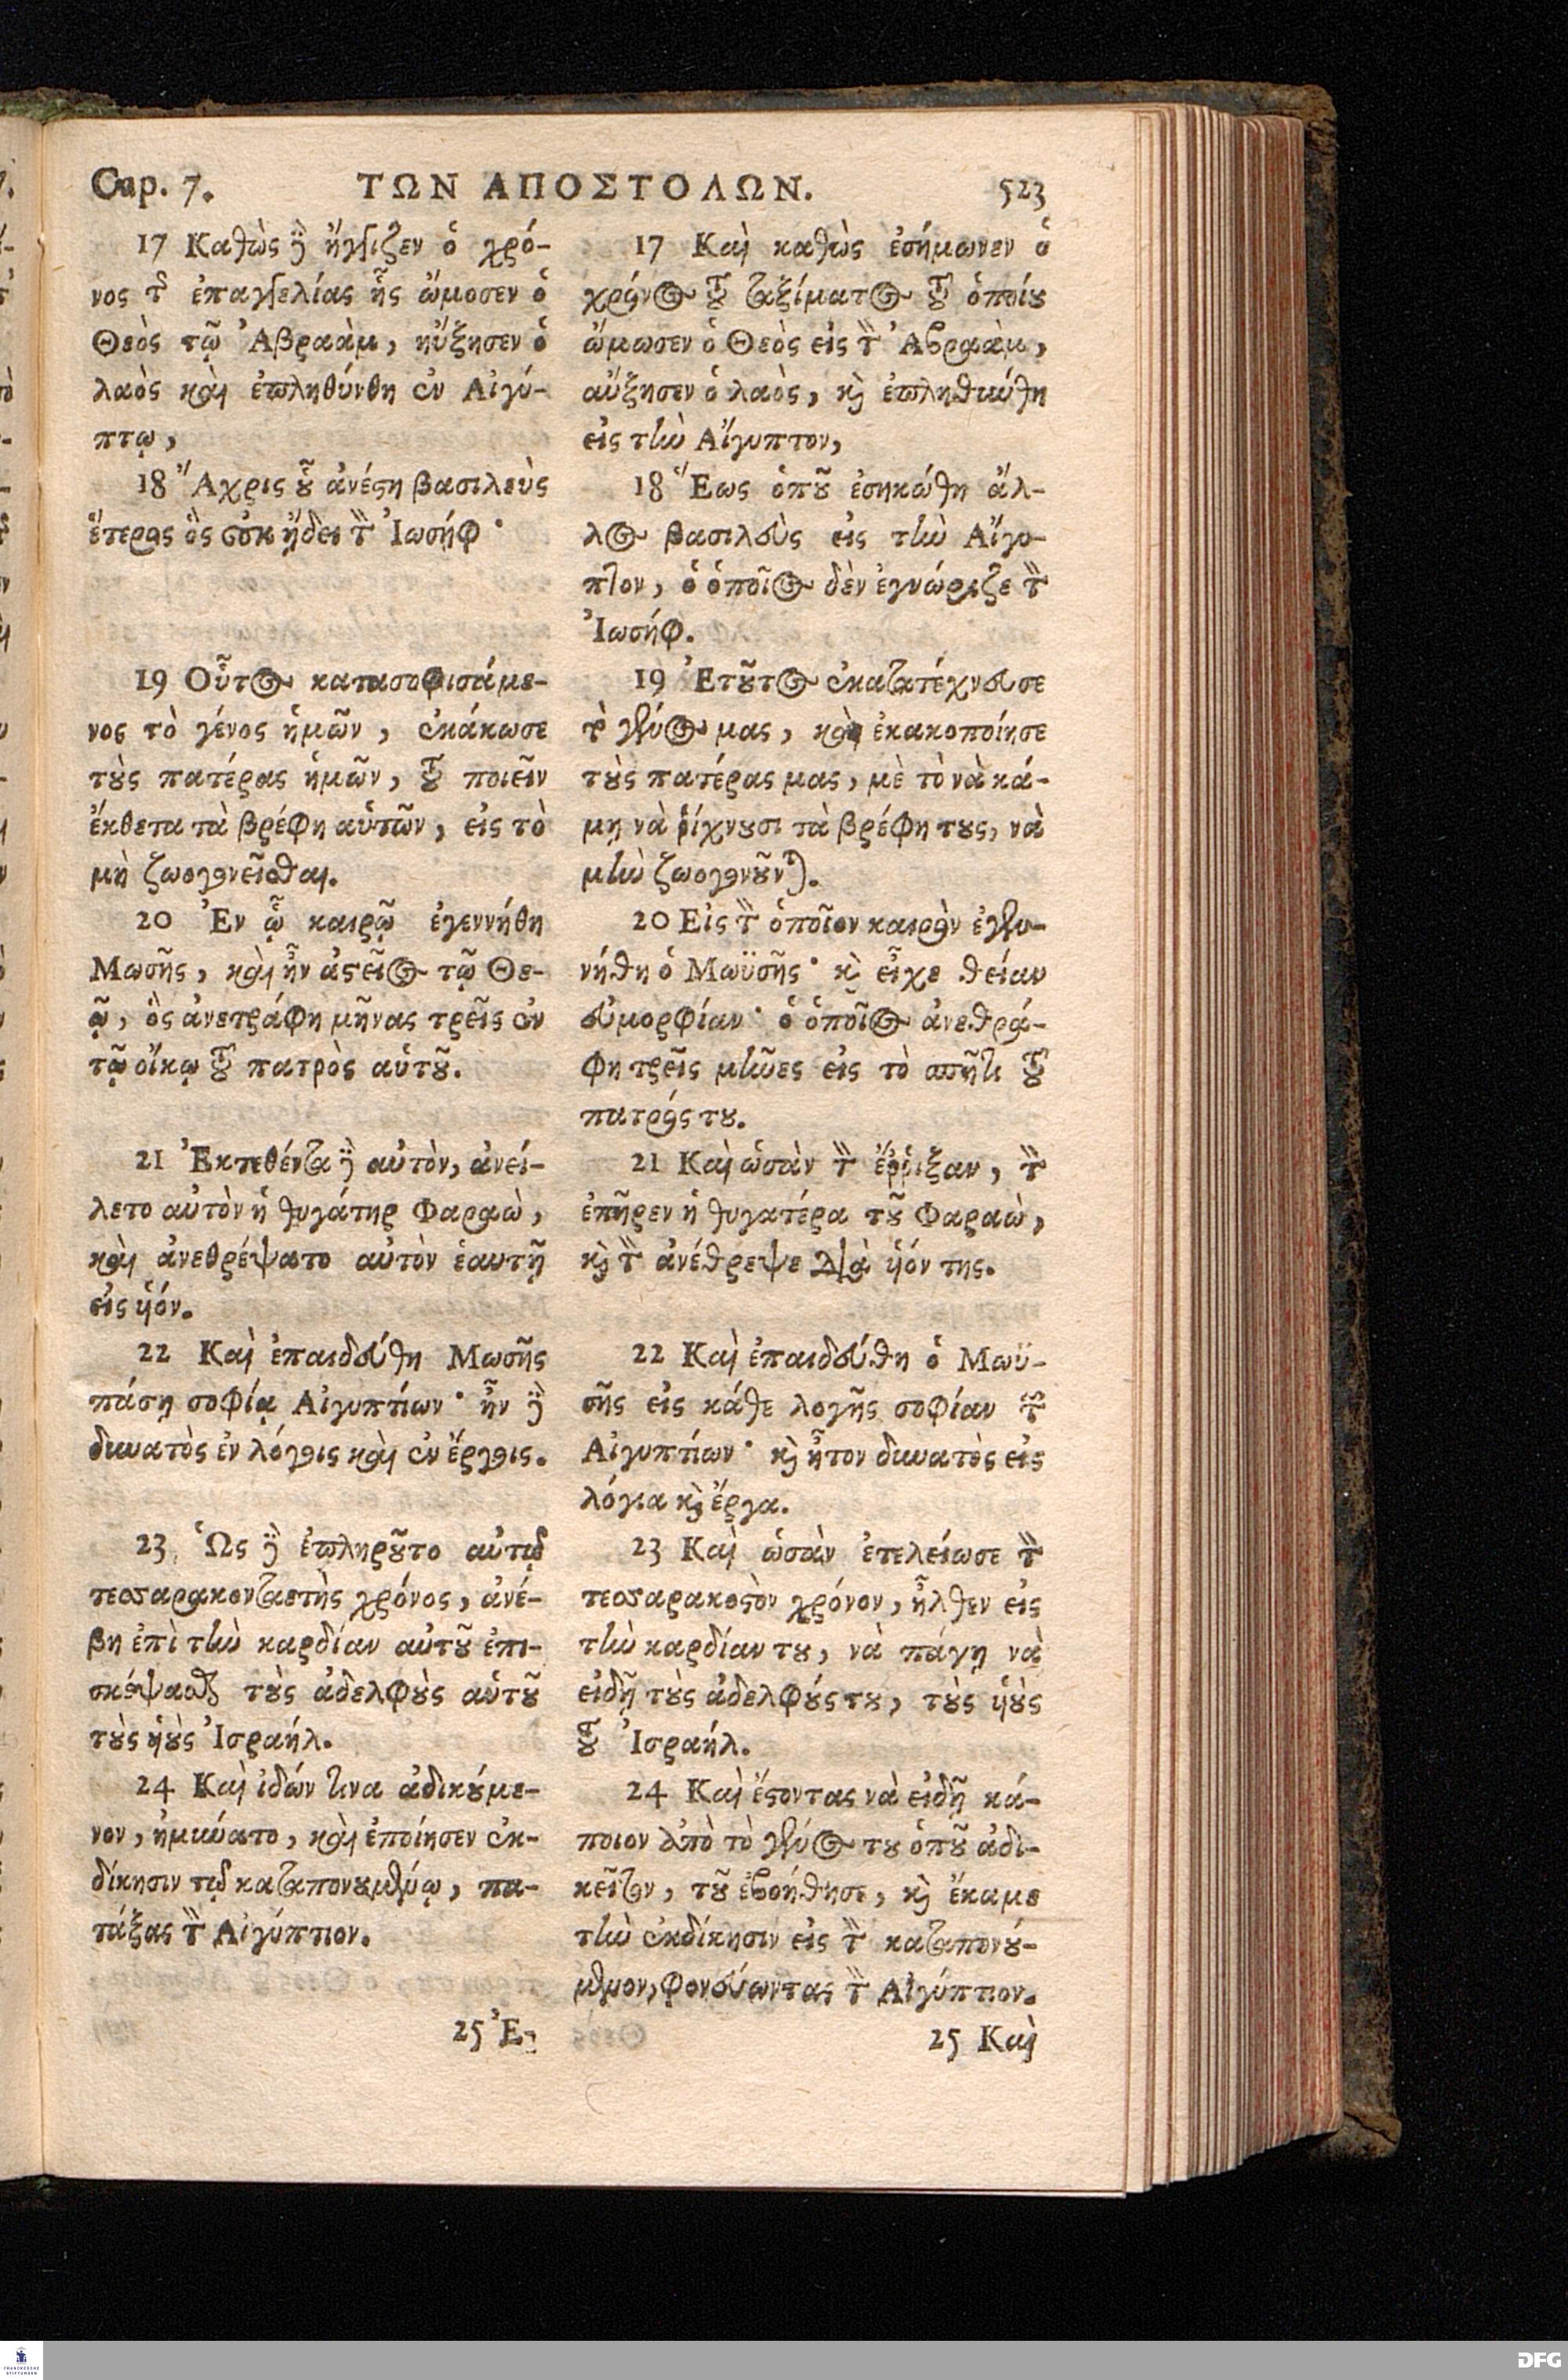 Cap. 7. ΤΩΝ ΑΠΟΣΤΟΛΩΝ. 523
17 Καθὼς ἢ ἤγγιζεν ὁ χρό-
νος τ͂ ἐπαγγελίας ἧς ὤμοσεν ὁ
Θεὸς τῷ Ἀβραὰμ, ηὔξησεν ὁ
λαὸς καὶ ἐπληθύνθη ἐν Αἰγύ-
πτῳ,
18 Ἄχρις ȣ̃ ἀνέϛη βασιλεὺς
ἕτερος ὃς οὐκ ᾔδει τ̀ Ἰωσήφ·
19 Οὗτος κατασοφισάμε-
νος τὸ γένος ἡμῶν, ἐκάκωσε
τȣ̀ς πατέρας ἡμῶν, τȣ̃ ποιεῖν
ἔκθετα τὰ βρέφη αὑτῶν, εἰς τὸ
μὴ ζωογονεῖσθαι.
20 Ἐν ᾧ καιρῷ ἐγεννήθη
Μωσῆς, καὶ ἦν ἀϛεῖος τῷ Θε-
ῷ, ὃς ἀνετράφη μῆνας τρεῖς ἐν
τῷ οἴκῳ τȣ̃ πατρὸς αὑτȣ̃.
21 Ἐκτεθέντα ἢ αὐτὸν, ἀνεί-
λετο αὐτὸν ἡ θυγάτηρ Φαραὼ,
καὶ ἀνεθρέψατο αὐτὸν ἑαυτῇ
εἰς ὑόν.
22 Καὶ ἐπαιδεύθη Μωσῆς
πάσῃ σοφίᾳ Αἰγυπτίων· ἦν ἢ
δυνατὸς ἐν λόγοις καὶ ἐν ἔργοις.
23 Ὡς ἢ ἐπληρȣ̃το αὐτῷ
τεσσαρακονταετὴς χρόνος, ἀνέ-
βη ἐπὶ τὴν καρδίαν αὐτȣ̃ ἐπι-
σκέψασθαι τȣ̀ς ἀδελφȣ̀ς αὑτȣ̃
τȣ̀ς ὑȣ̀ς Ἰσραήλ.
24 Καὶ ἰδών τινα ἀδικȣ́με-
νον, ἠμύνατο, καὶ ἐποίησεν ἐκ-
δίκησιν τῷ καταπονȣμένῳ, πα-
τάξας τ̀ Αἰγύπτιον.
25 Ἐ-
17 Καὶ καθὼς ἐσήμωνεν ὁ
χρόνος τȣ̃ ταξίματος τȣ̃ ὁποίȣ
ὤμωσεν ὁ Θεὸς εἰς τ̀ Ἀβραὰμ,
αὔξησεν ὁ λαὸς, κ̀ ἐπληθύθη
εἰς τὴν Αἴγυπτον,
18 Ἕως ὁπȣ̃ ἐσηκώθη ἄλ-
λος βασιλεὺς εἰς τὴν Αἴγυ-
πτον, ὁ ὁποῖος δὲν ἐγνώριζε τ̀
Ἰωσήφ.
19 Ἐτȣ̃τος ἐκατατέχνευσε
τὸ γένος μας, καὶ ἐκακοποίησε
τȣ̀ς πατέρας μας, μὲ τὸ νὰ κά-
μῃ νὰ ῥίχνȣσι τὰ βρέφη τȣς, νὰ
μὴν ζωογονȣ̃νται.
20 Εἰς τ̀ ὁποῖον καιρὸν ἐγεν-
νήθη ὁ Μωϋσῆς· κ̀ εἶχε θείαν
εὐμορφίαν· ὁ ὁποῖος ἀνεθρά-
φη τρεῖς μῆνες εἰς τὸ σπῆτι τȣ̃
πατρός τȣ.
21 Καὶ ὡσὰν τ̀ ἔῤῥιξαν, τ̀
ἐπῆρεν ἡ θυγατέρα τȣ̃ Φαραὼ,
κ̀ τ̀ ἀνέθρεψε διὰ ὑόν της.
22 Καὶ ἐπαιδεύθη ὁ Μωϋ-
σῆς εἰς κάθε λογῆς σοφίαν τ̃
Αἰγυπτίων· κ̀ ἦτον δυνατὸς εἰς
λόγια κ̀ ἔργα.
23 Καὶ ὡσὰν ἐτελείωσε τ̀
τεσσαρακοϛὸν χρόνον, ἦλθεν εἰς
τὴν καρδίαν τȣ, νὰ πάγῃ νὰ
εἰδῇ τȣ̀ς ἀδελφȣ́ς τȣ, τȣ̀ς ὑȣ̀ς
τȣ̃ Ἰσραήλ.
24 Καὶ ἔϛοντας νὰ εἰδῇ κά-
ποιον ἀπὸ τὸ γένος τȣ ὁπȣ̃ ἀδι-
κεῖτον, τȣ̃ ἐβοήθησε, κ̀ ἔκαμε
τὴν ἐκδίκησιν εἰς τ̀ καταπονȣ́-
μενον, φονεύωντας τ̀ Αἰγύπτιον.
25 Καὶ
FRANCKESCHE STIFTUNGEN
DFG